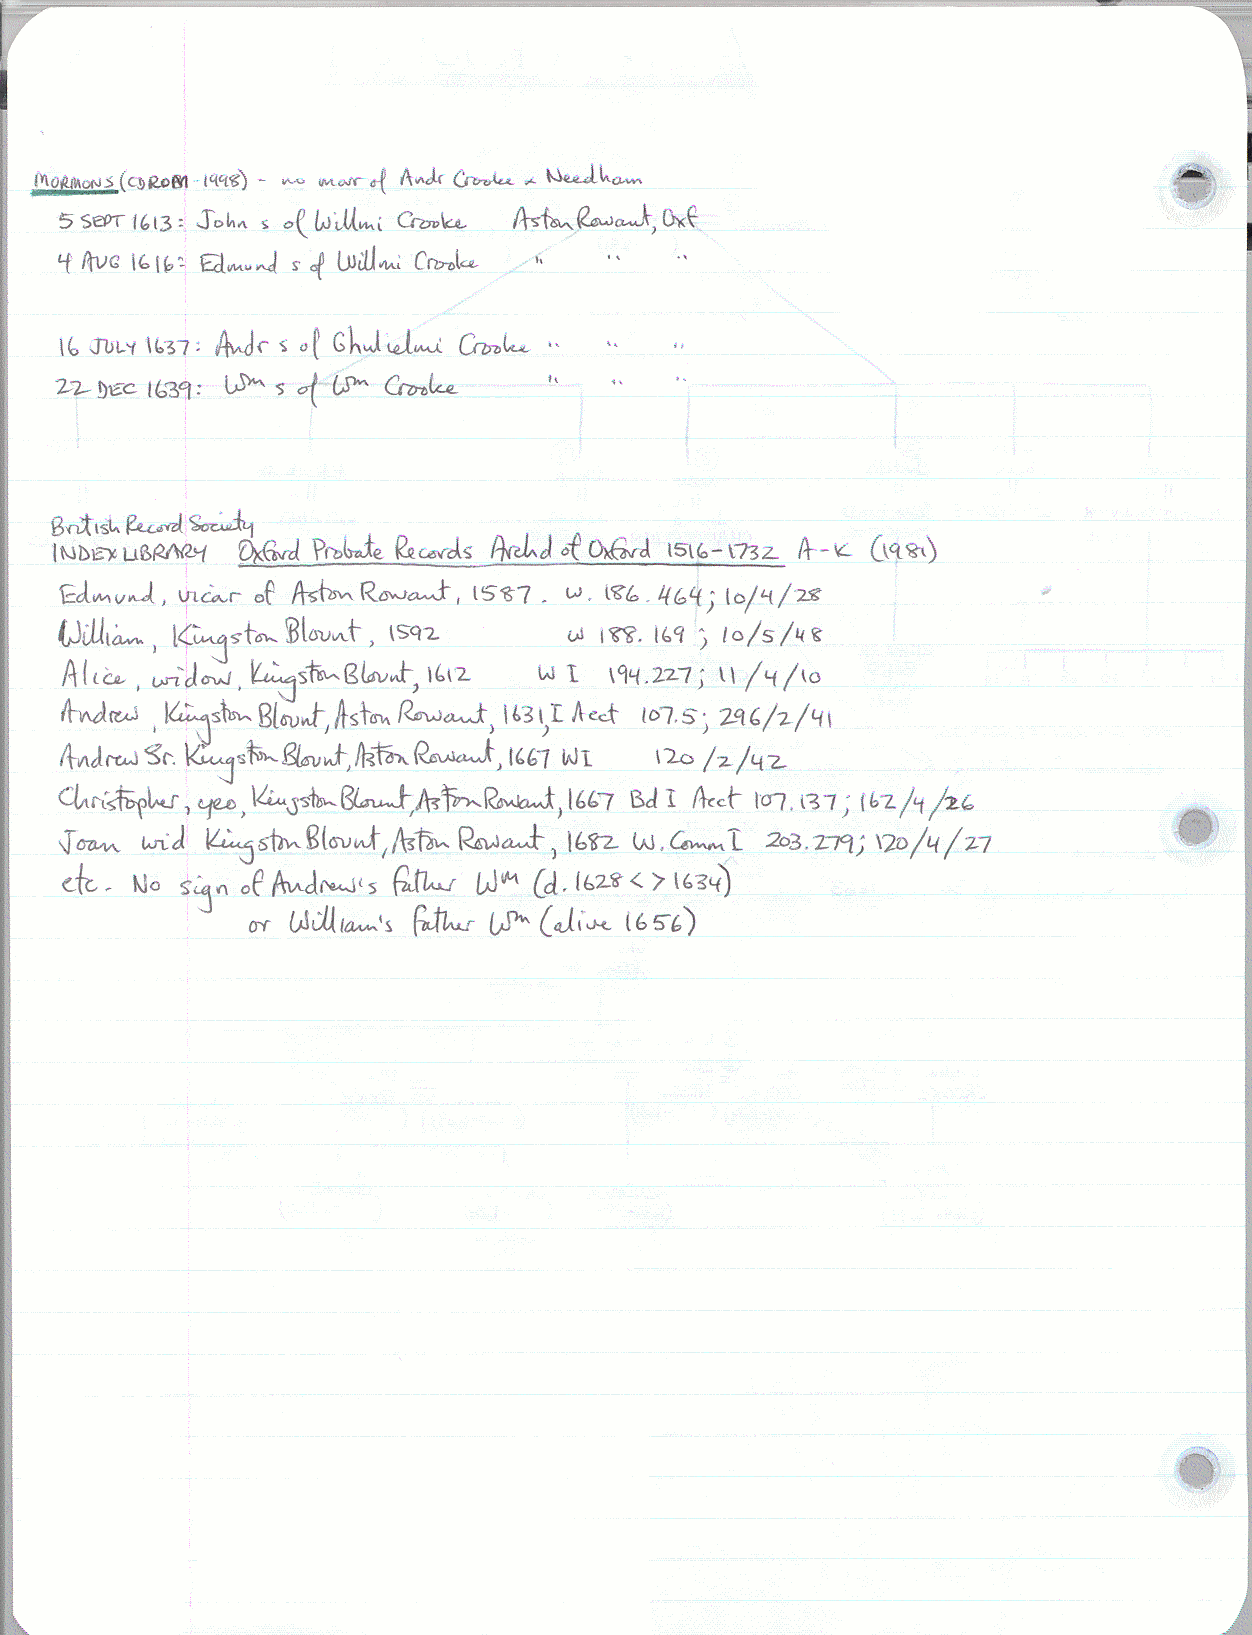 MORMONS (CDROM - 1998) - no marr of Andr Crooke x Needham
5 SEPT 1613: John s of Willmi Crooke Aston Rowant, Oxf
4 AUG 1616: Edmund s of Willmi Crooke " " "
16 JULY 1637: Andr s of Ghulielmi Crooke " " "
22 DEC 1639: Wm s of Wm Crooke " " "
British Record Society
INDEX LIBRARY Oxford Probate Records Archd of Oxford 1516-1732 A-K (1981)
Edmund, vicar of Aston Rowant, 1587. w. 186.464; 10/4/28
William, Kingston Blount, 1592 w 188.169; 10/5/48
Alice, widow, Kingston Blount, 1612 W I 194.227; 11/4/10
Andrew, Kingston Blount, Aston Rowant, 1631, I Acct 107.5; 296/2/41
Andrew Sr. Kingston Blount, Aston Rowant, 1667 WI 120/2/42
Christopher, yeo, Kingston Blount, Aston Rowant, 1667 Bd I Acct 107.137; 162/4/26
Joan wid Kingston Blount, Aston Rowant, 1682 W. Comm I 203.279; 120/4/27
etc. No sign of Andrew's father Wm (d. 1628 < > 1634)
or William's father Wm (alive 1656)